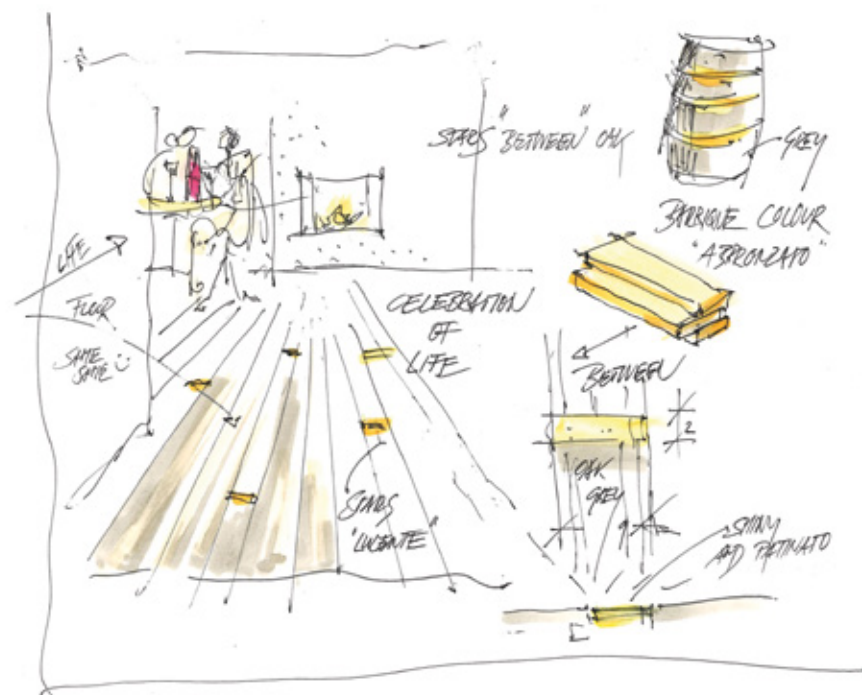 STARS "BETWEEN" OAK
GREY
BARRIQUE COLOUR
"ABBRONZATO"
LIFE
FLOOR
SAME
SAME
CELEBRATION
OF
LIFE
BETWEEN
2
OAK
GREY
STARS
"LUCENTE"
SHINY
AND PATINATO